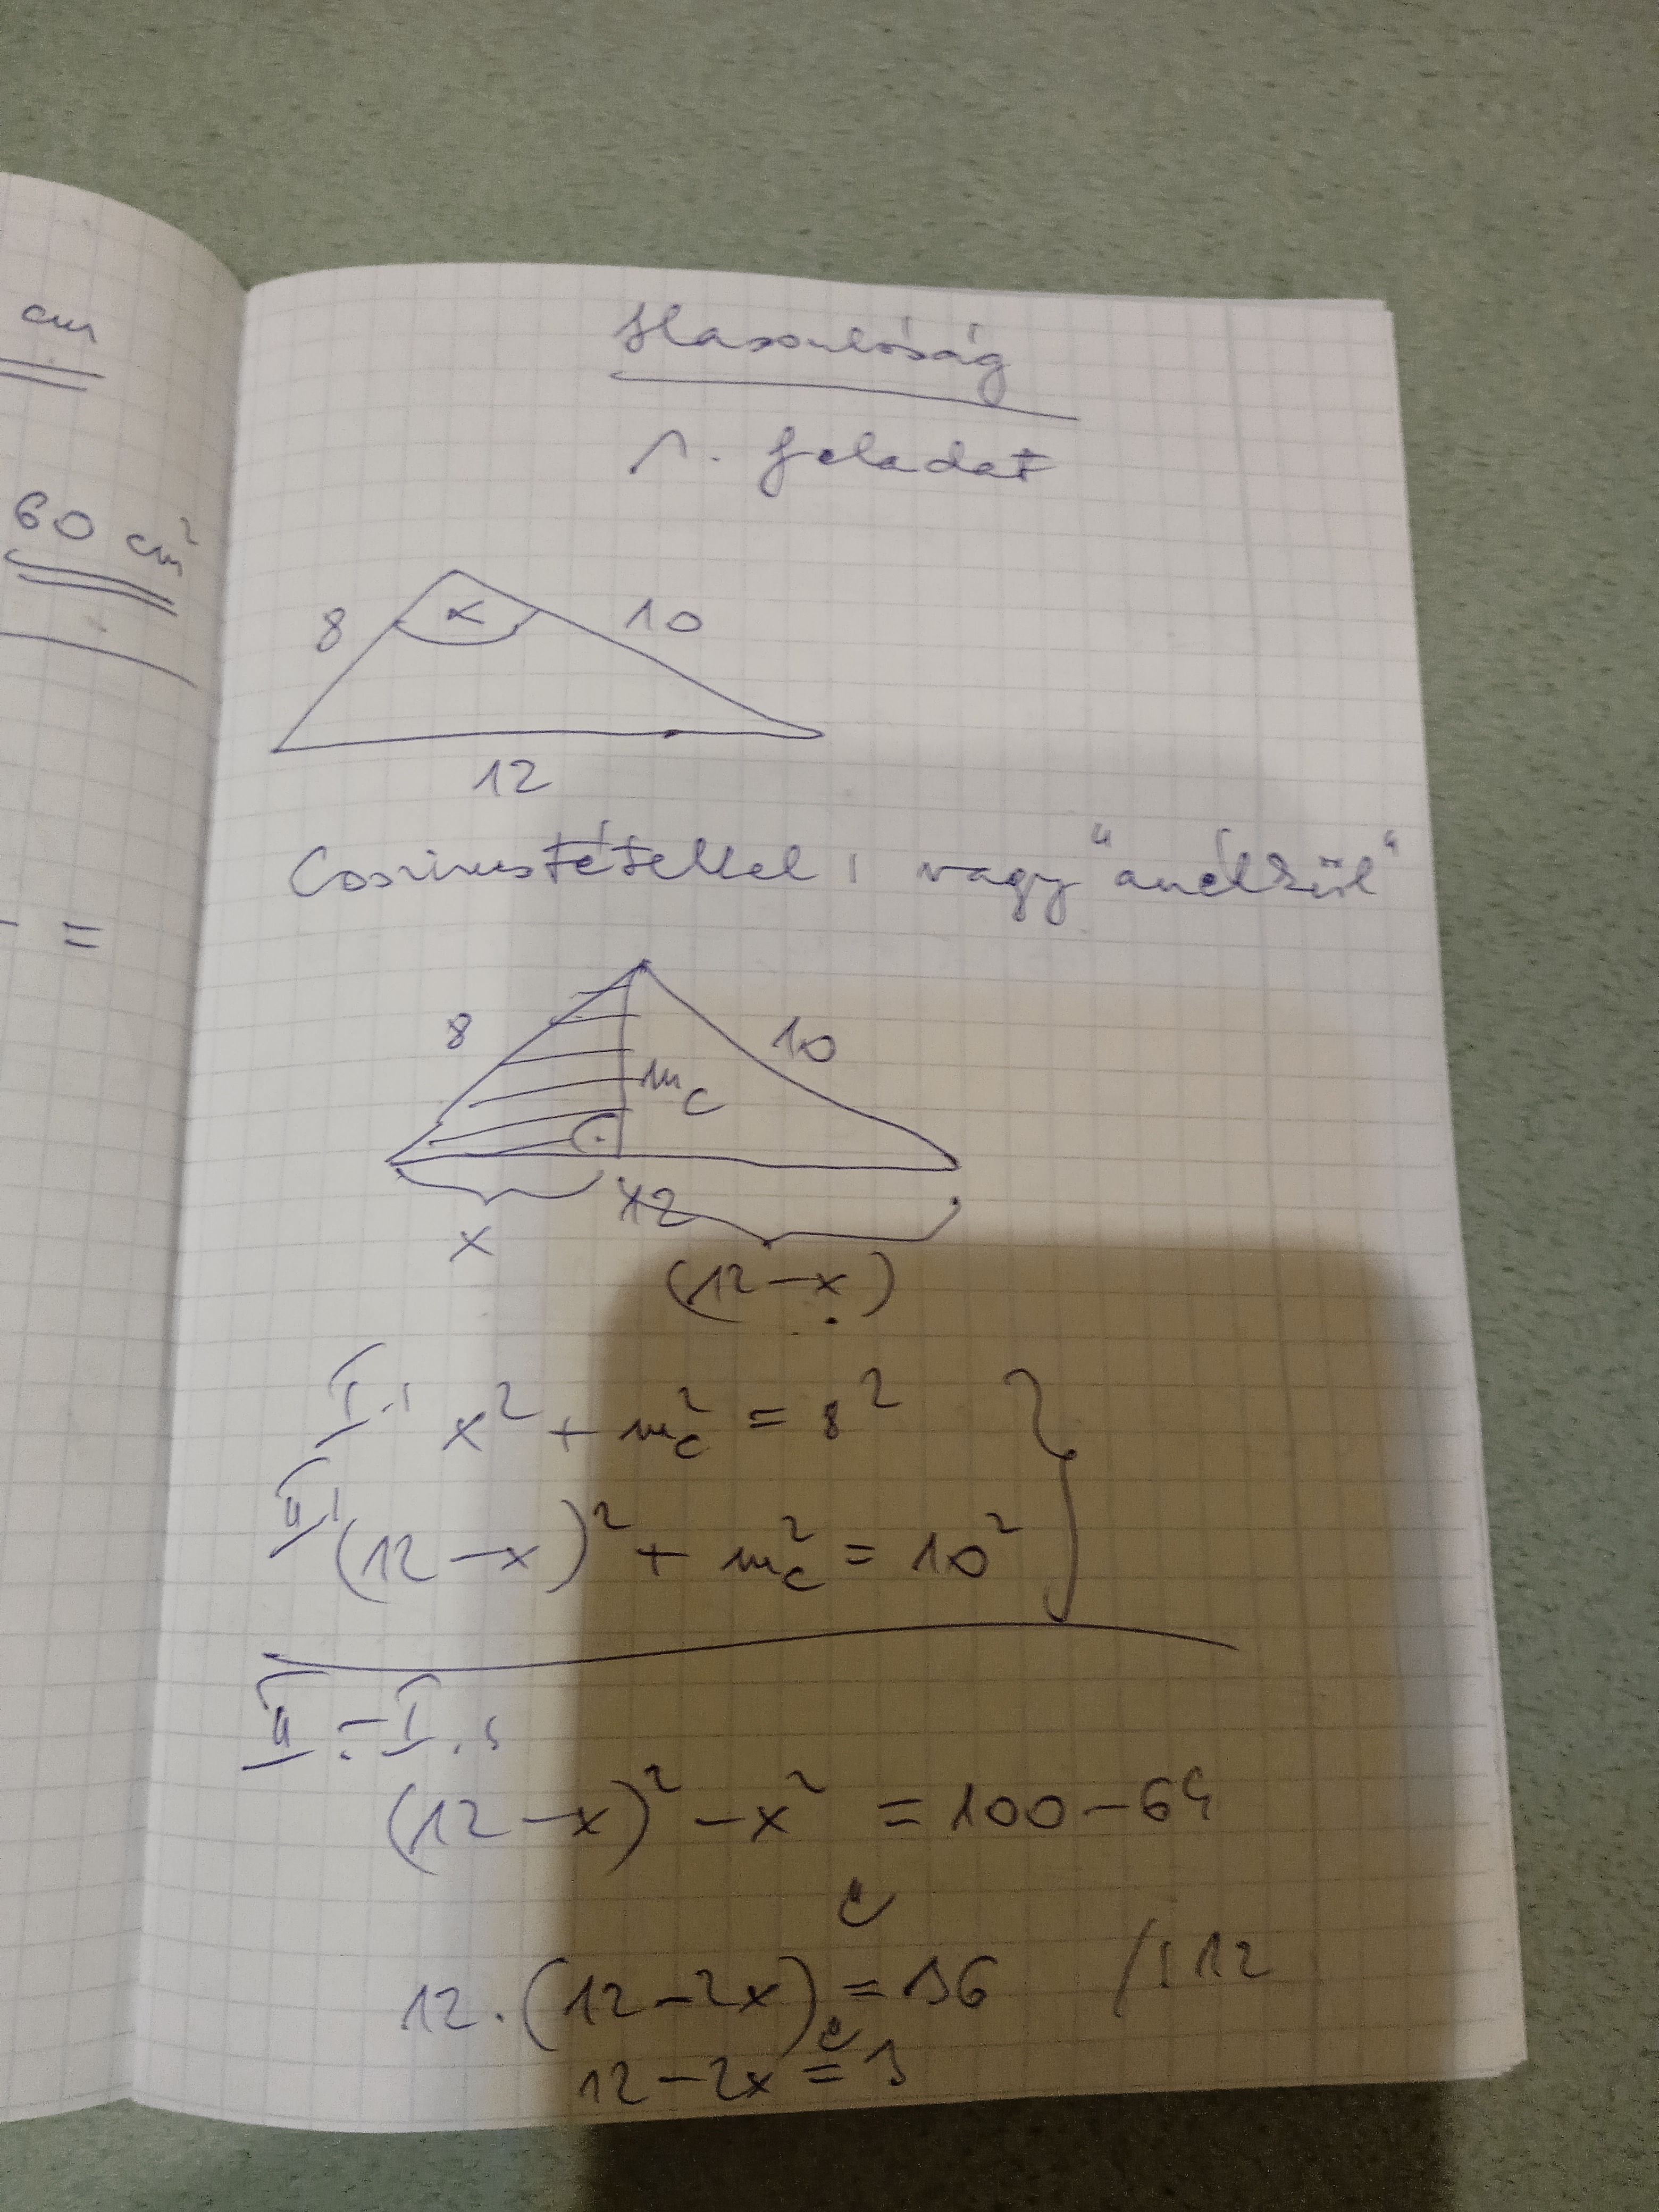 cm
60 cm²
=
Hasonlóság
1. feladat
8 α 10
12
Coszinustétellel, vagy "anélkül"
8 10
m_c
12
x
(12-x)
I. x² + m_c² = 8²
II. (12-x)² + m_c² = 10²
II. - I.:
(12-x)² - x² = 100-64
12·(12-2x) = 36 /:12
12-2x = 3